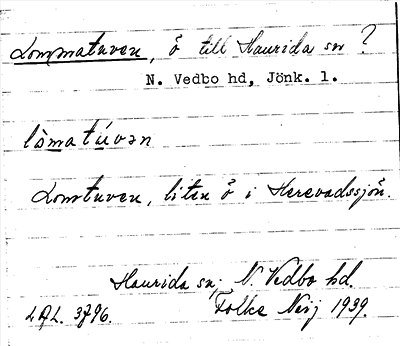 Lommatuven, ö till Haurida sn ?
N. Vedbo hd, Jönk. l.
lòmatúvən
Lomtuven, liten ö i Herevadssjön.
Haurida sn, N. Vedbo hd.
LAL. 3796. Folke Neij 1939.